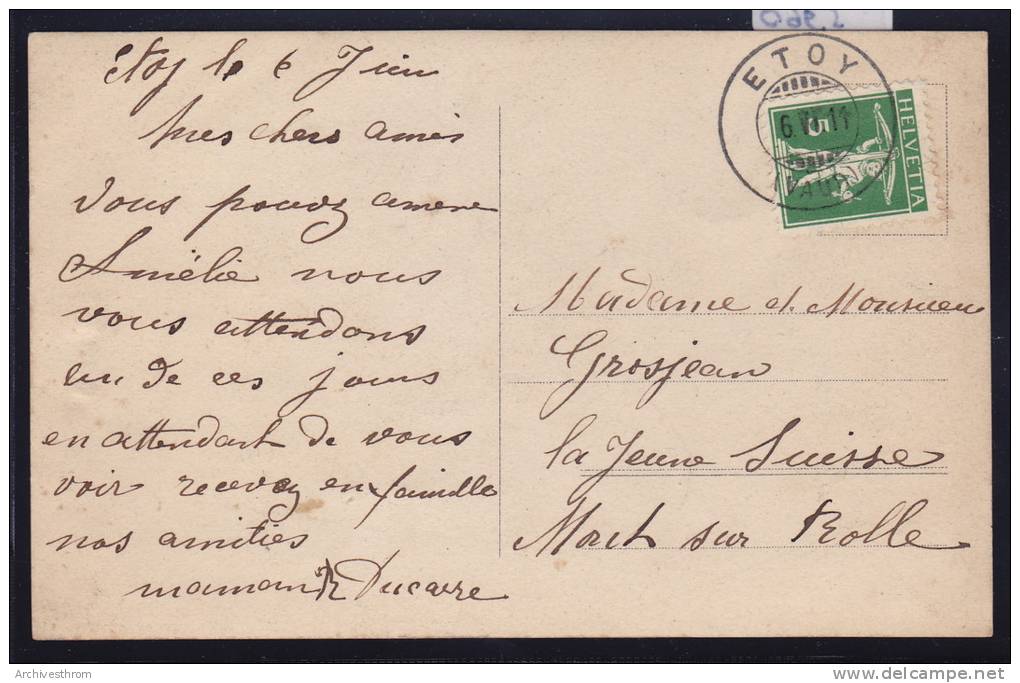 Etoy le 6 Juin
Mes chers amis
Vous pouvez amene
Amélie nous
vous attendons
un de ces jours
en attendant de vous
voir recevez en famille
nos amitiés
maman Ducarre
ETOY
6.VI.11
(VAUD)
HELVETIA
5
Madame et Monsieur
Grosjean
la Jeune Suisse
Mont sur Rolle
Archivesthrom
www.delcampe.net